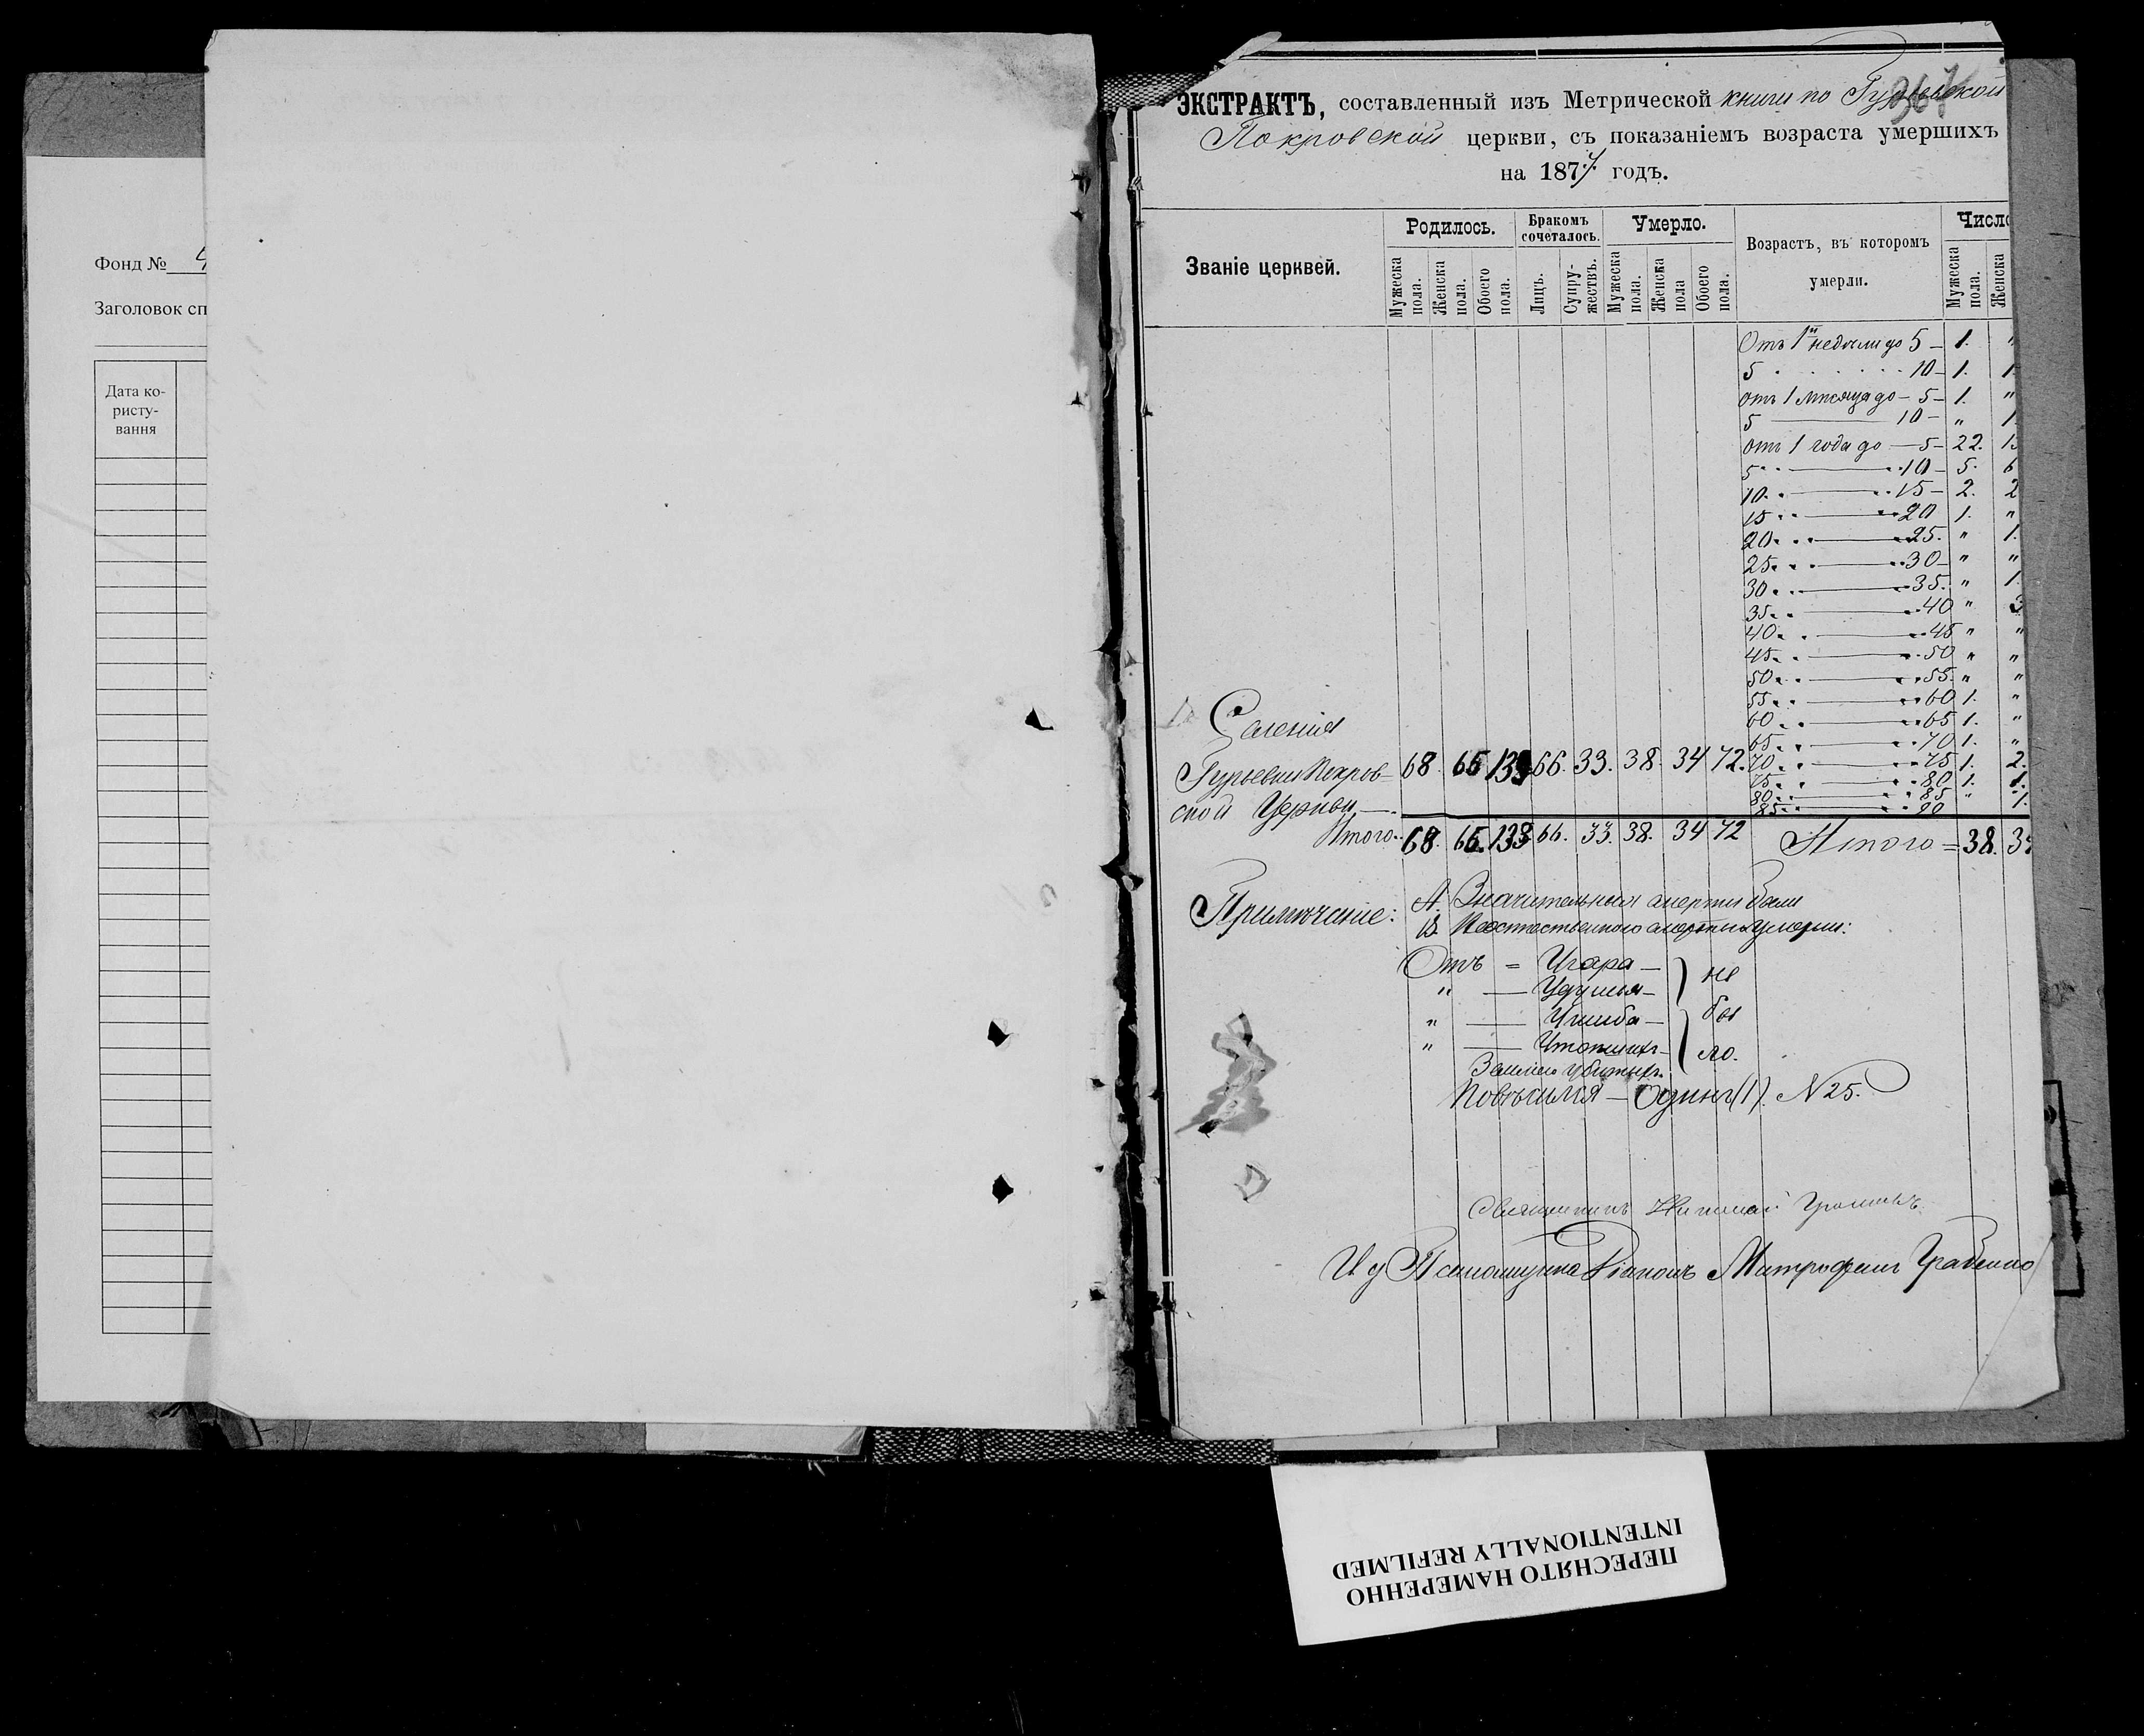 Фонд № 4
Заголовок сп
Дата ко-
ристу-
вання
367
ЭКСТРАКТЪ, составленный изъ Метрической книги по Гурьевской
Покровской церкви, съ показаніемъ возраста умершихъ
на 1874 годъ.
Званіе церквей.
Родилось.
Мужеска пола.
Женска пола.
Обоего пола.
Бракомъ сочеталось.
Лицъ.
Супру-жествъ.
Умерло.
Мужеска пола.
Женска пола
Обоего пола.
Возрастъ, въ которомъ
умерли.
Число
Мужеска пола.
Женска
Отъ 1й недѣли до 5 — 1. "
5 . . . . . . 10 — 1. 1.
отъ 1 мѣсяца до — 5 — 1. "
5 — 10 — " 1
отъ 1 года до — 5 — 22. 1
5 — 10 — 5. 6
10 — 15 — 2. 2
15 — 20 1. "
20 — 25. " 1.
25 — 30 — " "
30 — 35. " 1.
35 — 40 " 3
40 — 45 " "
45 — 50 " "
50 — 55. " "
55 — 60 1. "
60 — 65 1. "
65 — 70 1. "
70 — 75 1. 2.
75 — 80 1. 1.
80 — 85 " "
85 — 90 1.
Селенія
Гурьевки Покров-
ской Церкви —
68. 65 133 66. 33. 38. 34 72.
Итого. 68. 65. 133 66. 33. 38. 34 72 Итого = 38. 34
Примѣчаніе: А. Значительныя смерти были
В. Неестественною смертію умерли:
Отъ = Угара — не
" — Удушья —
" — Ушиба — бы
" — Утопшихъ — ло.
Землею убитыхъ.
Повѣсился — Одинъ (1). N 25.
Священникъ Николай
И д Псаломщика Діаконъ Митрофанъ
ПЕРЕСНЯТО НАМЕРЕННО
INTENTIONALLY REFILMED